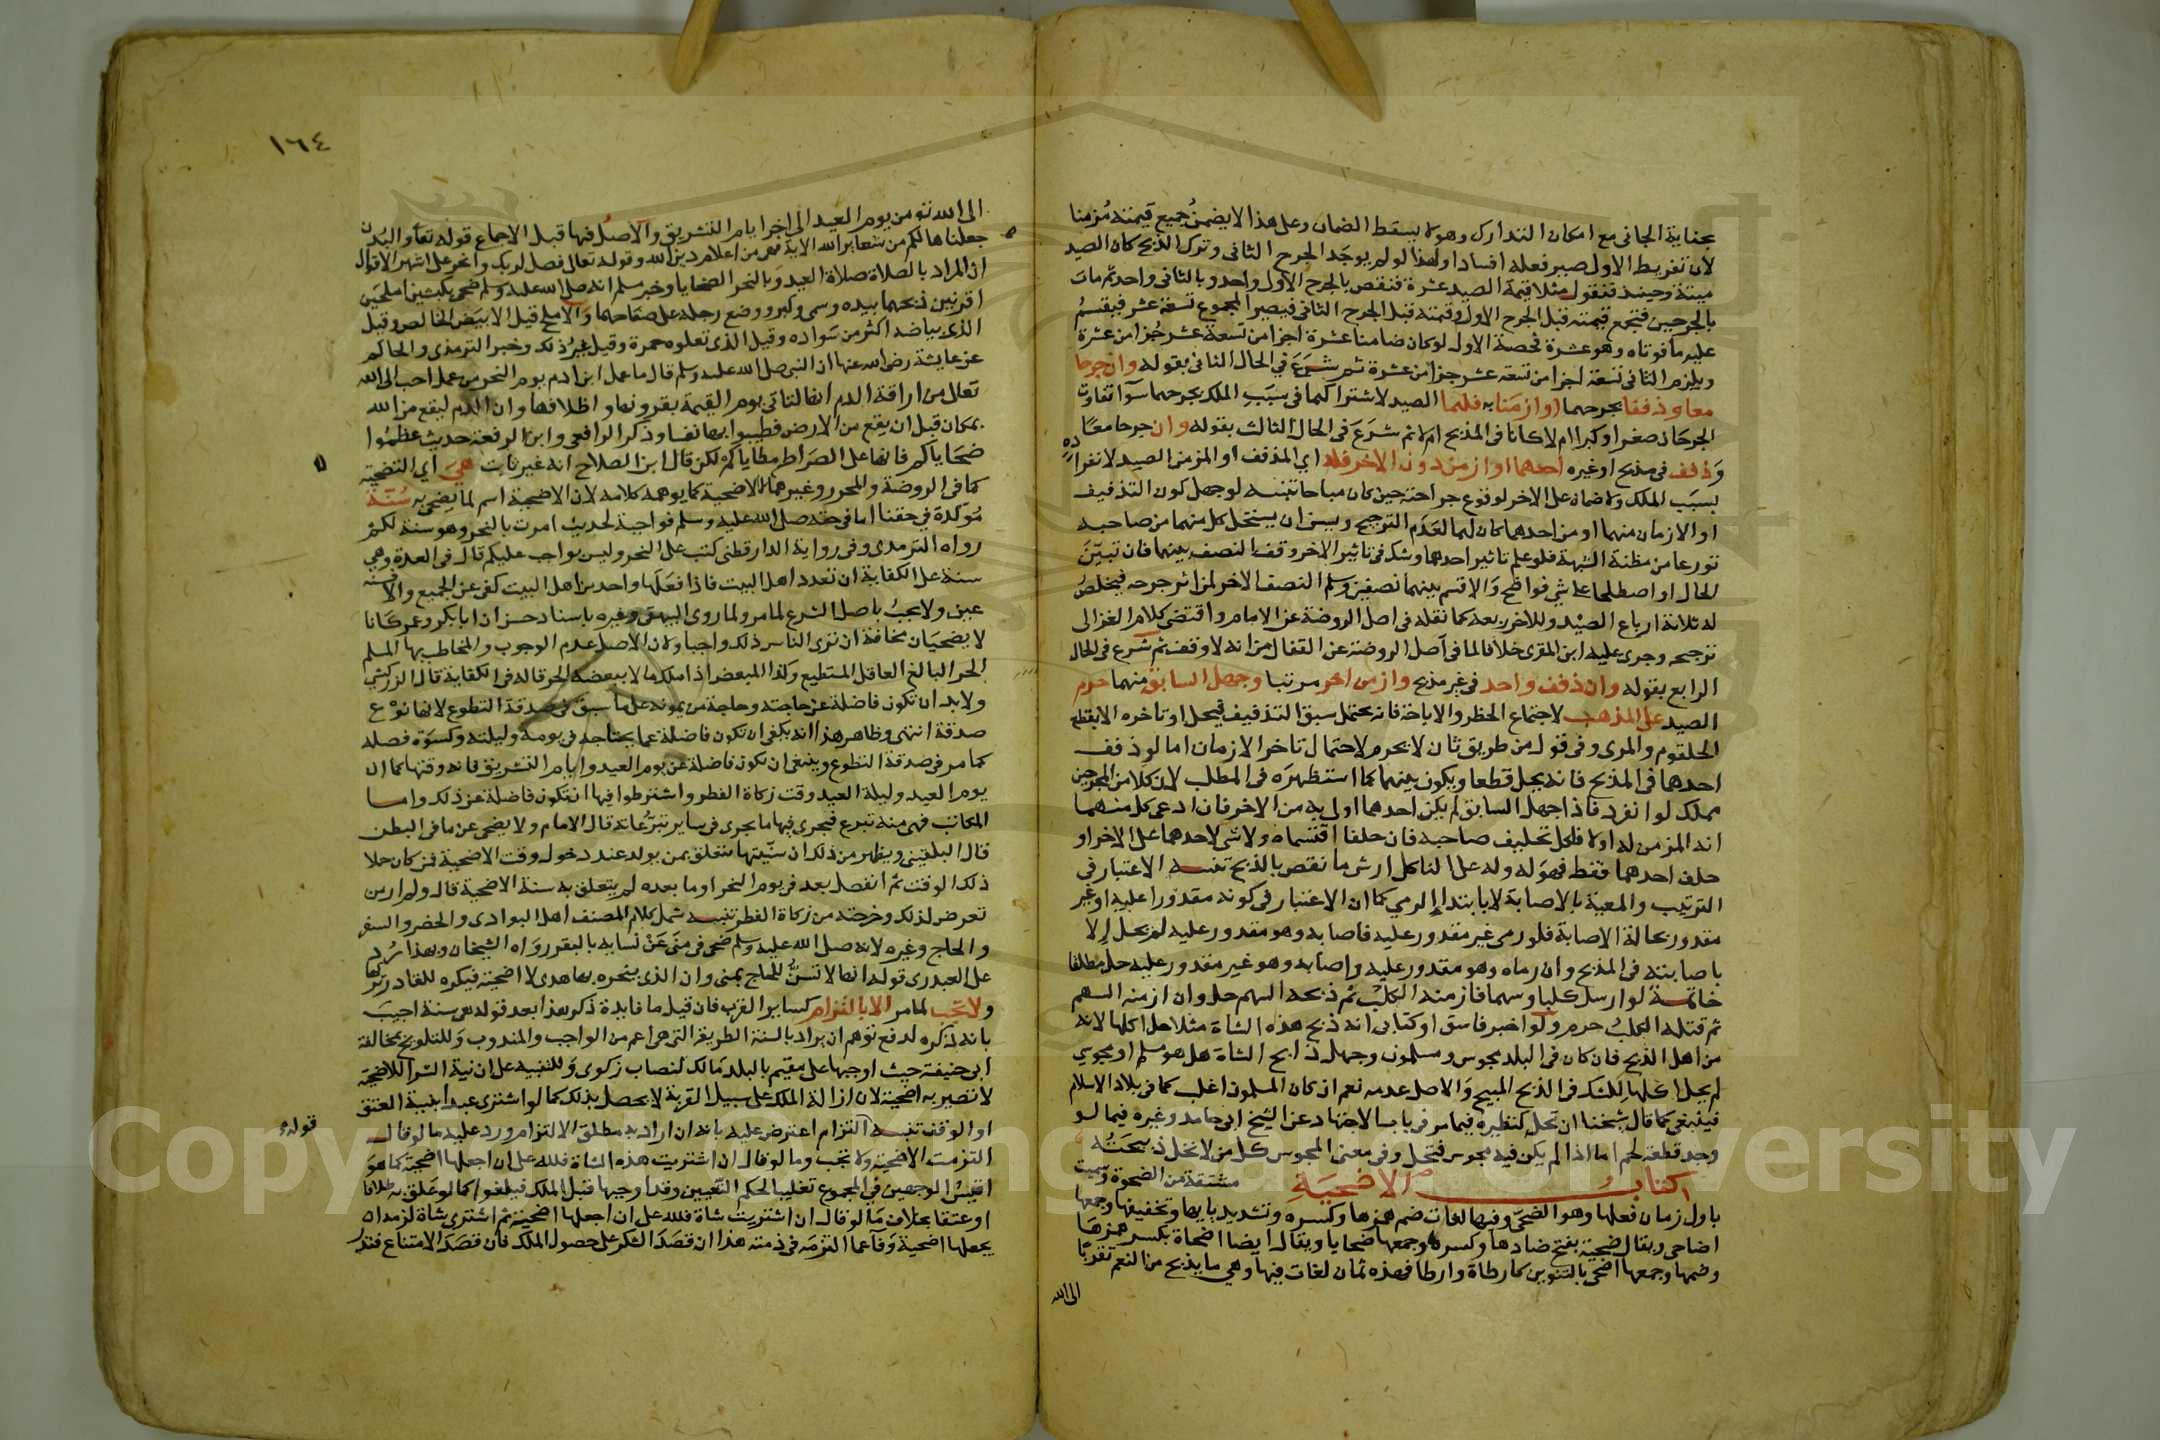 بجناية الجانى مع امكان التدارك وهو لا يسقط الضمان وعلى هذا لا يضمن جميع قيمته مزمنا
لان تفريط الاول صير فعله افسادا ولهذا لو لم يوجد الجرح الثانى وترك الذبح كان الصيد
ميتة وحينئذ فنقول مثلا قيمة الصيد عشرة فنقص بالجرح الاول واحد وبالثانى واحد ثم مات
بالجرحين فتجمع قيمته قبل الجرح الاول وقيمته قبل الجرح الثانى فيصير المجموع تسعة عشر فيقسم
عليه ما فوتاه وهو عشرة فحصة الاول لو كان ضامنا عشرة اجزا من تسعة عشر جزا من عشرة
ويلزم الثانى تسعة اجزا من تسعة عشر جزا من عشرة ثم شرع في الحال الثانى بقوله وان جرحا
معا وذففا بجرحهما او ازمنا به فلهما الصيد لاشتراكهما فى سبب الملك بجرحهما سوآ تفاوت
الجرحان صغرا وكبرا ام لا كانا فى المذبح ام لا ثم شرع في الحال الثالث بقوله وان جرحا معا
وذفف فى مذبح او غيره احدهما او ازمن دون الاخر فله اي المذفف او المزمن الصيد لانفراده
بسبب الملك ولا ضمان على الاخر لوقوع جراحته حين كان مباحا تنبيه لو جهل كون التذفيف
او الازمان منهما او من احدهما كان لهما لعدم الترجيح ويسن ان يستحل كل منهما من صاحبه
تورعا من مظنة الشبهة فلو علم تاثير احدهما وشك فى تاثير الاخر وقف النصف بينهما فان تبين
الحال او اصطلحا على شى فواضح والا قسم بينهما نصفين وسلم النصف الاخر لمن اثر جرحه فيخلص
له ثلاثة ارباع الصيد وللاخر ربعه كما نقله فى اصل الروضة عن الامام واقتضى كلام الغزالى
ترجيحه وجرى عليه ابن المقرى خلافا لما فى اصل الروضة عن القفال من انه لا وقف ثم شرع فى الحال
الرابع بقوله وان ذفف واحد فى غير مذبح وازمن اخر مرتبا وجهل السابق منهما حرم
الصيد على المذهب لاجتماع الحظر والاباحة فانه يحتمل سبق التذفيف فيحل او تاخره الا بقطع
الحلقوم والمرى وفى قول من طريق ثان لا يحرم لاحتمال تاخر الازمان اما لو ذفف
احدهما فى المذبح فانه يحل قطعا ويكون بينهما كما استظهره فى المطلب لان كلا من الجرحين
مملك لو انفرد فاذا جهل السابق لم يكن احدهما اولى به من الاخر فان ادعى كل منهما
انه المزمن له اولا فلكل تحليف صاحبه فان حلفا اقتسماه ولا شى لاحدهما على الاخر او
حلف احدهما فقط فهو له وله على الناكل ارش ما نقص بالذبح تنبيه الاعتبار فى
الترتيب والمعية بالاصابة لا بابتدا الرمي كما ان الاعتبار فى كونه مقدورا عليه او غير
مقدور بحالة الاصابة فلو رمى غير مقدور عليه فاصابه وهو مقدور عليه لم يحل الا
باصابته فى المذبح وان رماه وهو مقدور عليه واصابه وهو غير مقدور عليه حل مطلقا
خاتمة لو ارسل كلبا وسهما فازمنه الكلب ثم ذبحه السهم حل وان ازمنه السهم
ثم قتله الكلب حرم ولو اخبر فاسق او كتابى انه ذبح هذه الشاة مثلا حل اكلها لانه
من اهل الذبح فان كان فى البلد مجوس ومسلمون وجهل ذابح الشاة هل هو مسلم او مجوسي
لم يحل اكلها للشك فى الذبح المبيح والاصل عدمه نعم ان كان المسلمون اغلب كما فى بلاد الاسلام
فينبغى كما قال شيخنا ان تحل كنظيره فيما مر فى باب الاجتهاد عن الشيخ ابى حامد وغيره فيما لو
وجد قطعة لحم اما اذا لم يكن فيه مجوس فتحل وفى معنى المجوس كل من لا تحل ذبيحته
كتاب الاضحية مشتقة من الضحوة وسميت
باول زمان فعلها وهو الضحى وفيها لغات ضم همزها وكسره وتشديد يايها وتخفيفها وجمعها
اضاحى ويقال ضحية بفتح ضادها وكسرها وجمعها ضحايا ويقال ايضا اضحاة بكسر همزها
وضمها وجمعها اضحى بالتنوين كارطاة وارطا فهذه ثمان لغات فيها وهي ما يذبح من النعم تقربا
الى الله
١٦٤
الى الله تع من يوم العيد الى اخر ايام التشريق والاصل فيها قبل الاجماع قوله تعا والبدن
جعلناها لكم من شعاير الله الاية فهى من اعلام دين الله وقوله تعالى فصل لربك وانحر على اشهر الاقوال
ان المراد بالصلاة صلاة العيد وبالنحر الضحايا وخبر مسلم انه صلى الله عليه وسلم ضحى بكبشين املحين
اقرنين ذبحهما بيده وسمى وكبر ووضع رجله على صفاحهما والاملح قيل الابيض الخالص وقيل
الذى بياضه اكثر من سواده وقيل الذى تعلوه حمرة وقيل غير ذلك وخبر الترمذى والحاكم
عن عايشة رضى الله عنها ان النبى صلى الله عليه وسلم قال ما عمل ابن ادم يوم النحر من عمل احب الى الله
تعالى من اراقة الدم انها لتاتى يوم القيمة بقرونها واظلافها وان الدم ليقع من الله
بمكان قبل ان يقع من الارض فطيبوا بها نفسا وذكر الرافعى وابن الرفعة حديث عظموا
ضحاياكم فانها على الصراط مطاياكم لكن قال ابن الصلاح انه غير ثابت هى اي التضحية
كما فى الروضة والمحرر وغيرهما لا الاضحية كما يوهمه كلامه لان الاضحية اسم لما يضحى به سنة
موكدة في حقنا اما فى حقه صلى الله عليه وسلم فواجبة لحديث امرت بالنحر وهو سنة لكم
رواه الترمذى وفى رواية الدارقطنى كتب على النحر وليس بواجب عليكم قال فى العدة وهي
سنة على الكفاية ان تعدد اهل البيت فاذا فعلها واحد من اهل البيت كفى عن الجميع والا فسنة
عين ولا يجب باصل الشرع لما مر ولما روى البيهقى وغيره باسناد حسن ان ابا بكر وعمر كانا
لا يضحيان مخافة ان ترى الناس ذلك واجبا ولان الاصل عدم الوجوب والمخاطب بها المسلم
الحر البالغ العاقل المستطيع وكذا المبعض اذا ملك مالا ببعضه الحر قاله فى الكفاية قال الزركشي
ولا بد ان تكون فاضلة عن حاجته وحاجة من يمونه على ما سبق فى صدقة التطوع لانها نوع
صدقة انتهى وظاهر هذا انه يكفى ان تكون فاضلة عما يحتاجه فى يومه وليلته وكسوة فصله
كما مر فى صدقة التطوع وينبغى ان تكون فاضلة عن يوم العيد وايام التشريق فانه وقتها كما ان
يوم العيد وليلة العيد وقت زكاة الفطر واشترطوا فيها ان تكون فاضلة عن ذلك واما
المكاتب فهى منه تبرع فيجرى فيها ما يجرى فى ساير تبرعاته قال الامام ولا يضحى عن ما فى البطن
قال البلقينى ويظهر من ذلك ان سنيتها متعلق بمن يولد عند دخول وقت الاضحية فمن كان حملا
ذلك الوقت ثم انفصل بعد فى يوم النحر او ما بعده لم يتعلق به سنة الاضحية قال ولم ار من
تعرض لذلك وخرجته من زكاة الفطر تنبيه شمل كلام المصنف اهل البوادى والحضر والسفر
والحاج وغيره لانه صلى الله عليه وسلم ضحى فى منى عن نسايه بالبقر رواه الشيخان وبهذا رد
على العبدرى قوله انها لا تسن للحاج بمنى وان الذى ينحره بها هدى لا اضحية فيكره للقادر تركها
ولا تجب لما مر الا بالتزام كساير القرب فان قيل ما فايدة ذكر هذا بعد قوله هى سنة اجيب
بانه ذكره لدفع توهم ان يراد بالسنة الطريقة التى هى اعم من الواجب والمندوب وللتلويح بمخالفة
ابى حنيفة حيث اوجبها على مقيم بالبلد مالك لنصاب زكوى وللتنبيه على ان نية الشرا للاضحية
لا تصير به اضحية لان ازالة الملك على سبيل القربة لا يحصل بذلك كما لو اشترى عبدا بنية العتق
او الوقف تنبيه التزام اعترض عليه بانه ان اراد به مطلق الالتزام ورد عليه ما لو قال
التزمت الاضحية ولا تجب وما لو قال ان اشتريت هذه الشاة فلله على ان اجعلها اضحية كما هو
اقيس الوجهين فى المجموع تغليبا لحكم التعيين وقد اوجبها قبل الملك فيلغو كما لو علق به طلاقا
او عتقا بخلاف ما لو قال ان اشتريت شاة فلله على ان اجعلها اضحية ثم اشترى شاة لزمه ان
يجعلها اضحية وفآ عما التزمه فى ذمته هذا ان قصد الشكر على حصول الملك فان قصد الامتناع فنذر
قوله